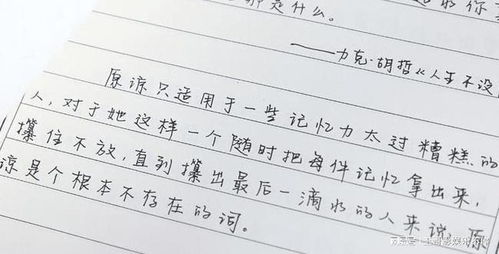 那是什么。
——力克·胡哲《人生不设
原谅只适用于一些记忆力太过糟糕的
人，对于她这样一个随时把每件记忆拿出来，
攥住不放，直到攥出最后一滴水的人来说，原
谅是个根本不存在的词。